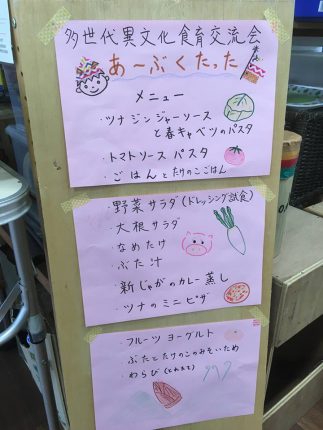 多世代異文化食育交流会
あ〜ぶくたった
メニュー
・ツナジンジャーソース
と春キャベツのパスタ
・トマトソースパスタ
・ごはんとたけのこごはん
・野菜サラダ(ドレッシング試食)
・大根サラダ
・なめたけ
・ぶた汁
・新じゃがのカレー蒸し
・ツナのミニピザ
・フルーツヨーグルト
・ぶたとたけのこのみそいため
・わらび(とれたて)